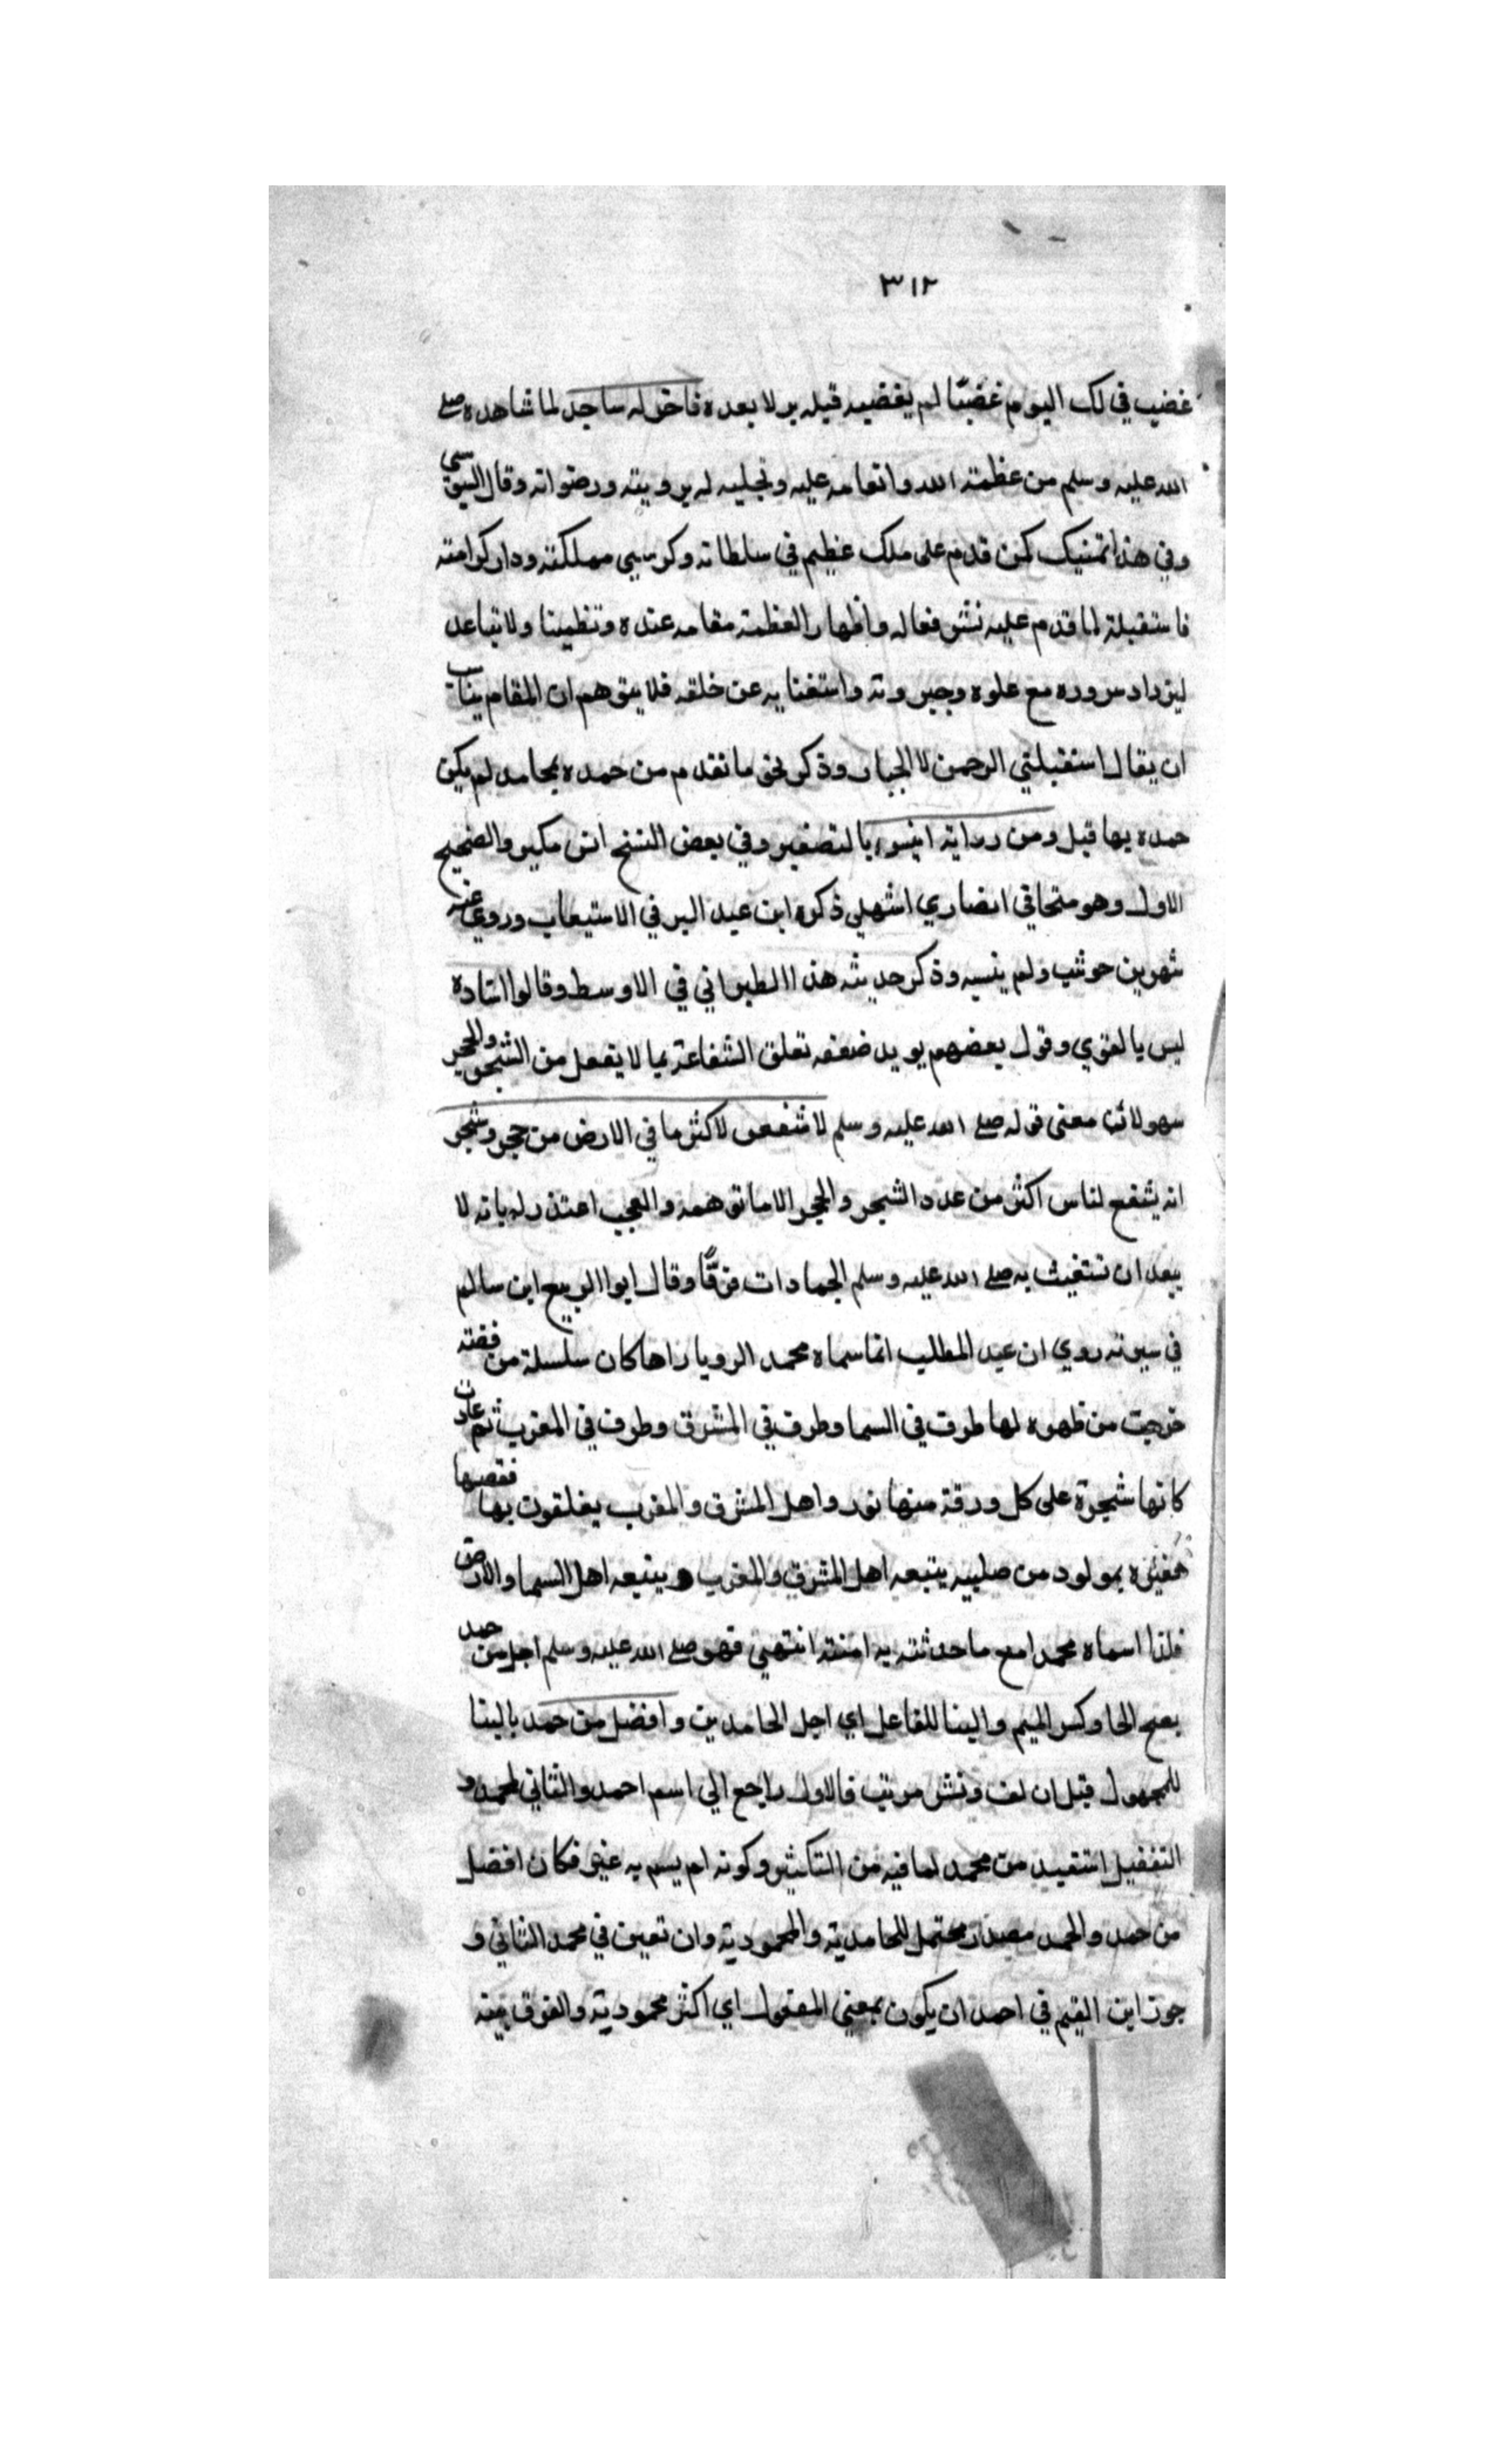 ٣١٢
غضب في لك اليوم غضبًا لم يغضب قبله بر لا بعده فاخر له ساجد لما شاهده صلي
الله عليه وسلم من عظمته الله وانعامه عليه وتجليه له برويته ورضوانه وقال السيوسي
وفي هذا تمنيك كمن قدم على ملك عظيم في سلطانه وكرسي مملكته ودار كرامته
فاستقبلة لما قدم عليه نشر فعاله واظهار العظمة مقامه عنده وتنظيبنا ولا تباعد
ليزداد سروره مع علوه وجبروته واستغنايه عن خلقه فلا يتوهم ان المقام يناسب
ان يقال استقبلتي الرحمن لا الجبار وذكر نحو ما تقدم من حمده بمحامد لم يكن
حمده بها قبل ومن رواية انيس بالتصغير وفي بعض النسخ انس مكبر والصحيح
الاول وهو صحابي انصاري اشهلي ذكره ابن عبد البر في الاستيعاب وروي عنه
شهر بن حوشب ولم ينسبه وذكر حديثه هذا الطبراني في الاوسط وقالوا اسناده
ليس بالقوي وقول بعضهم يويد ضعفه تعلق الشفاعة بما لا يعقل من الشجر والحجر
سهو لان معنى قوله صلي الله عليه وسلم لاشفعن لاكثر ما في الارض من حجر وشجر
انه يشفع لناس اكثر من عدد الشجر والحجر لا ما توهمه والعجب اعتذر له بانه لا
يبعد ان تستغيث به صلي الله عليه وسلم الجمادات فرقًا وقال ابوا الربيع ابن سالم
في سيرته روي ان عبد المطلب انما سماه محمد الرويا راها كان سلسلة من فضته
خرجت من ظهره لها طرف في السما وطرف في المشرق وطرف في المغرب ثم عادت
كانها شجرة على كل ورقة منها نور واهل المشرق والمغرب يغلقون بها فقصها
فعبره بمولود من صلبه يتبعه اهل المشرق والمغرب ويتبعه اهل السما والارض
فلذا اسماه محمدا مع ما حدثته به امنته انتهي فهو صلي الله عليه وسلم اجل من حمد
بفتح الحا وكسر الميم والبنا للفاعل اي اجل الحامدين وافضل من حمد بالبنا
للمجهول قبل ان لف ونشر مرتب فالاول راجع الي اسم احمد والثاني لمحمد و
التفضيل استفيد من محمد لما فيه من التكثير وكونه لم يسم به غيره فكان افضل
من حمد والحمد مصدر محتمل للحامدية والمحمودية وان تعين في محمد الثاني و
جوز ابن القيم في احمد ان يكون بمعني المفعول اي اكثر محمودية والفرق بينه